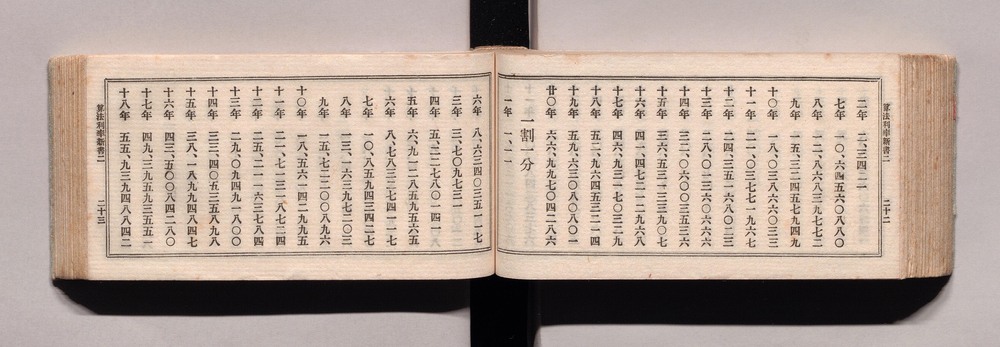 算法利率新書二 二十二
二年 二、三四二一
七年 一〇、六四五六〇七八〇
八年 一二、八六八三九七七二
九年 一五、三二四五七九四九
十〇年 一八、〇三八六六〇三三
十一年 二一、〇三七七一九六七
十二年 二四、三五一六八〇二三
十三年 二八、〇一三六〇六六六
十四年 三二、〇六〇〇三五三六
十五年 三六、五三一三三九〇七
十六年 四一、四七二一二九六八
十七年 四六、九三一七〇三二九
十八年 五二、九六四五三二一四
十九年 五九、六三〇八〇八〇一
廿〇年 六六、九九七〇四二八六
一割一分
一年 一、一一
六年 八、六三四〇三五一一七
三年 三、七〇九七三一
四年 五、二二七八〇一四一
五年 六、九一二八五九五六五
六年 八、七八三二七四一一七
七年 一〇、八五九四三四二七
八年 一三、一六三九七二〇三
九年 一五、七二二〇〇八九六
十〇年 一八、五六一四二九九五
十一年 二一、七一三一八七二四
十二年 二五、二一一六三七八四
十三年 二九、〇九四九一八〇〇
十四年 三三、四〇五三五八九八
十五年 三八、一八九九四八四七
十六年 四三、五〇〇八四二八〇
十七年 四九、三九五九三五五一
十八年 五五、九三九四八八四二
算法利率新書二 二十三